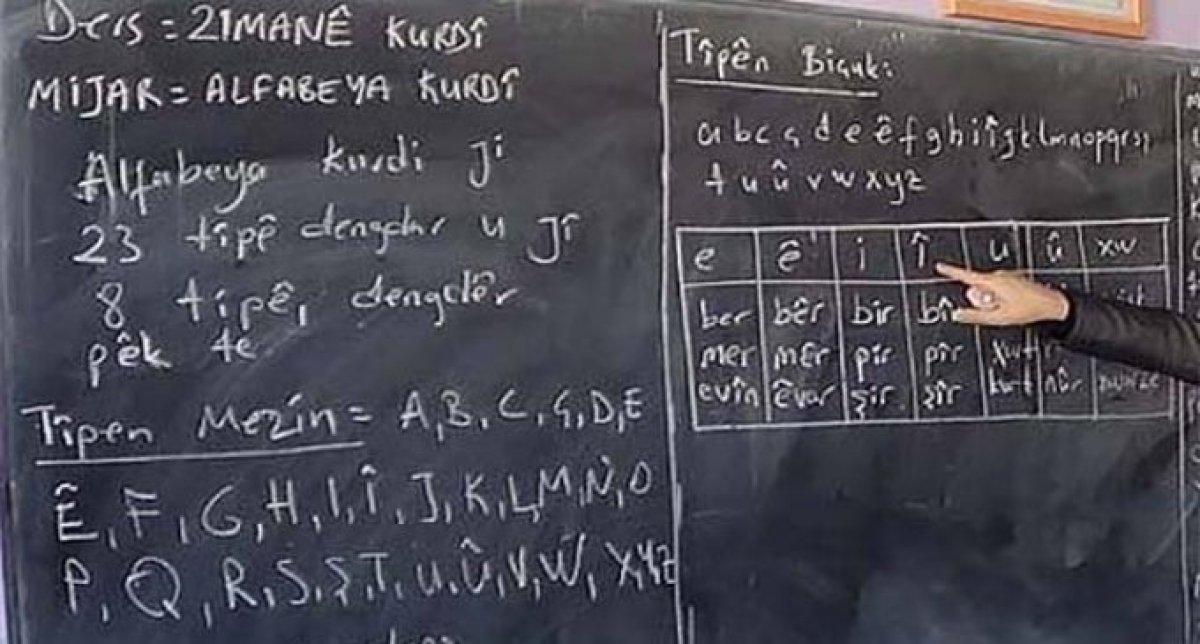 Ders = ZIMANÊ KURDÎ
MIJAR = ALFABEYA KURDÎ
Alfabeya kurdi ji
23 tîpê dengdar u Jî
8 tîpê, dengdêr
pêk te
Tîpen Mezin = A, B, C, Ç, D, E
Ê, F, G, H, I, Î, J, K, L, M, N, O
P, Q, R, S, Ş, T, U, Û, V, W, X, Y, Z
Tîpên Biçuk:
a b c ç d e ê f g h i î j k l m n o p q r s ş
t u û v w x y z
e ê i Î u û xw
ber bêr bir
mer mêr pir pîr
evîn êvar şir şîr kurt nûr